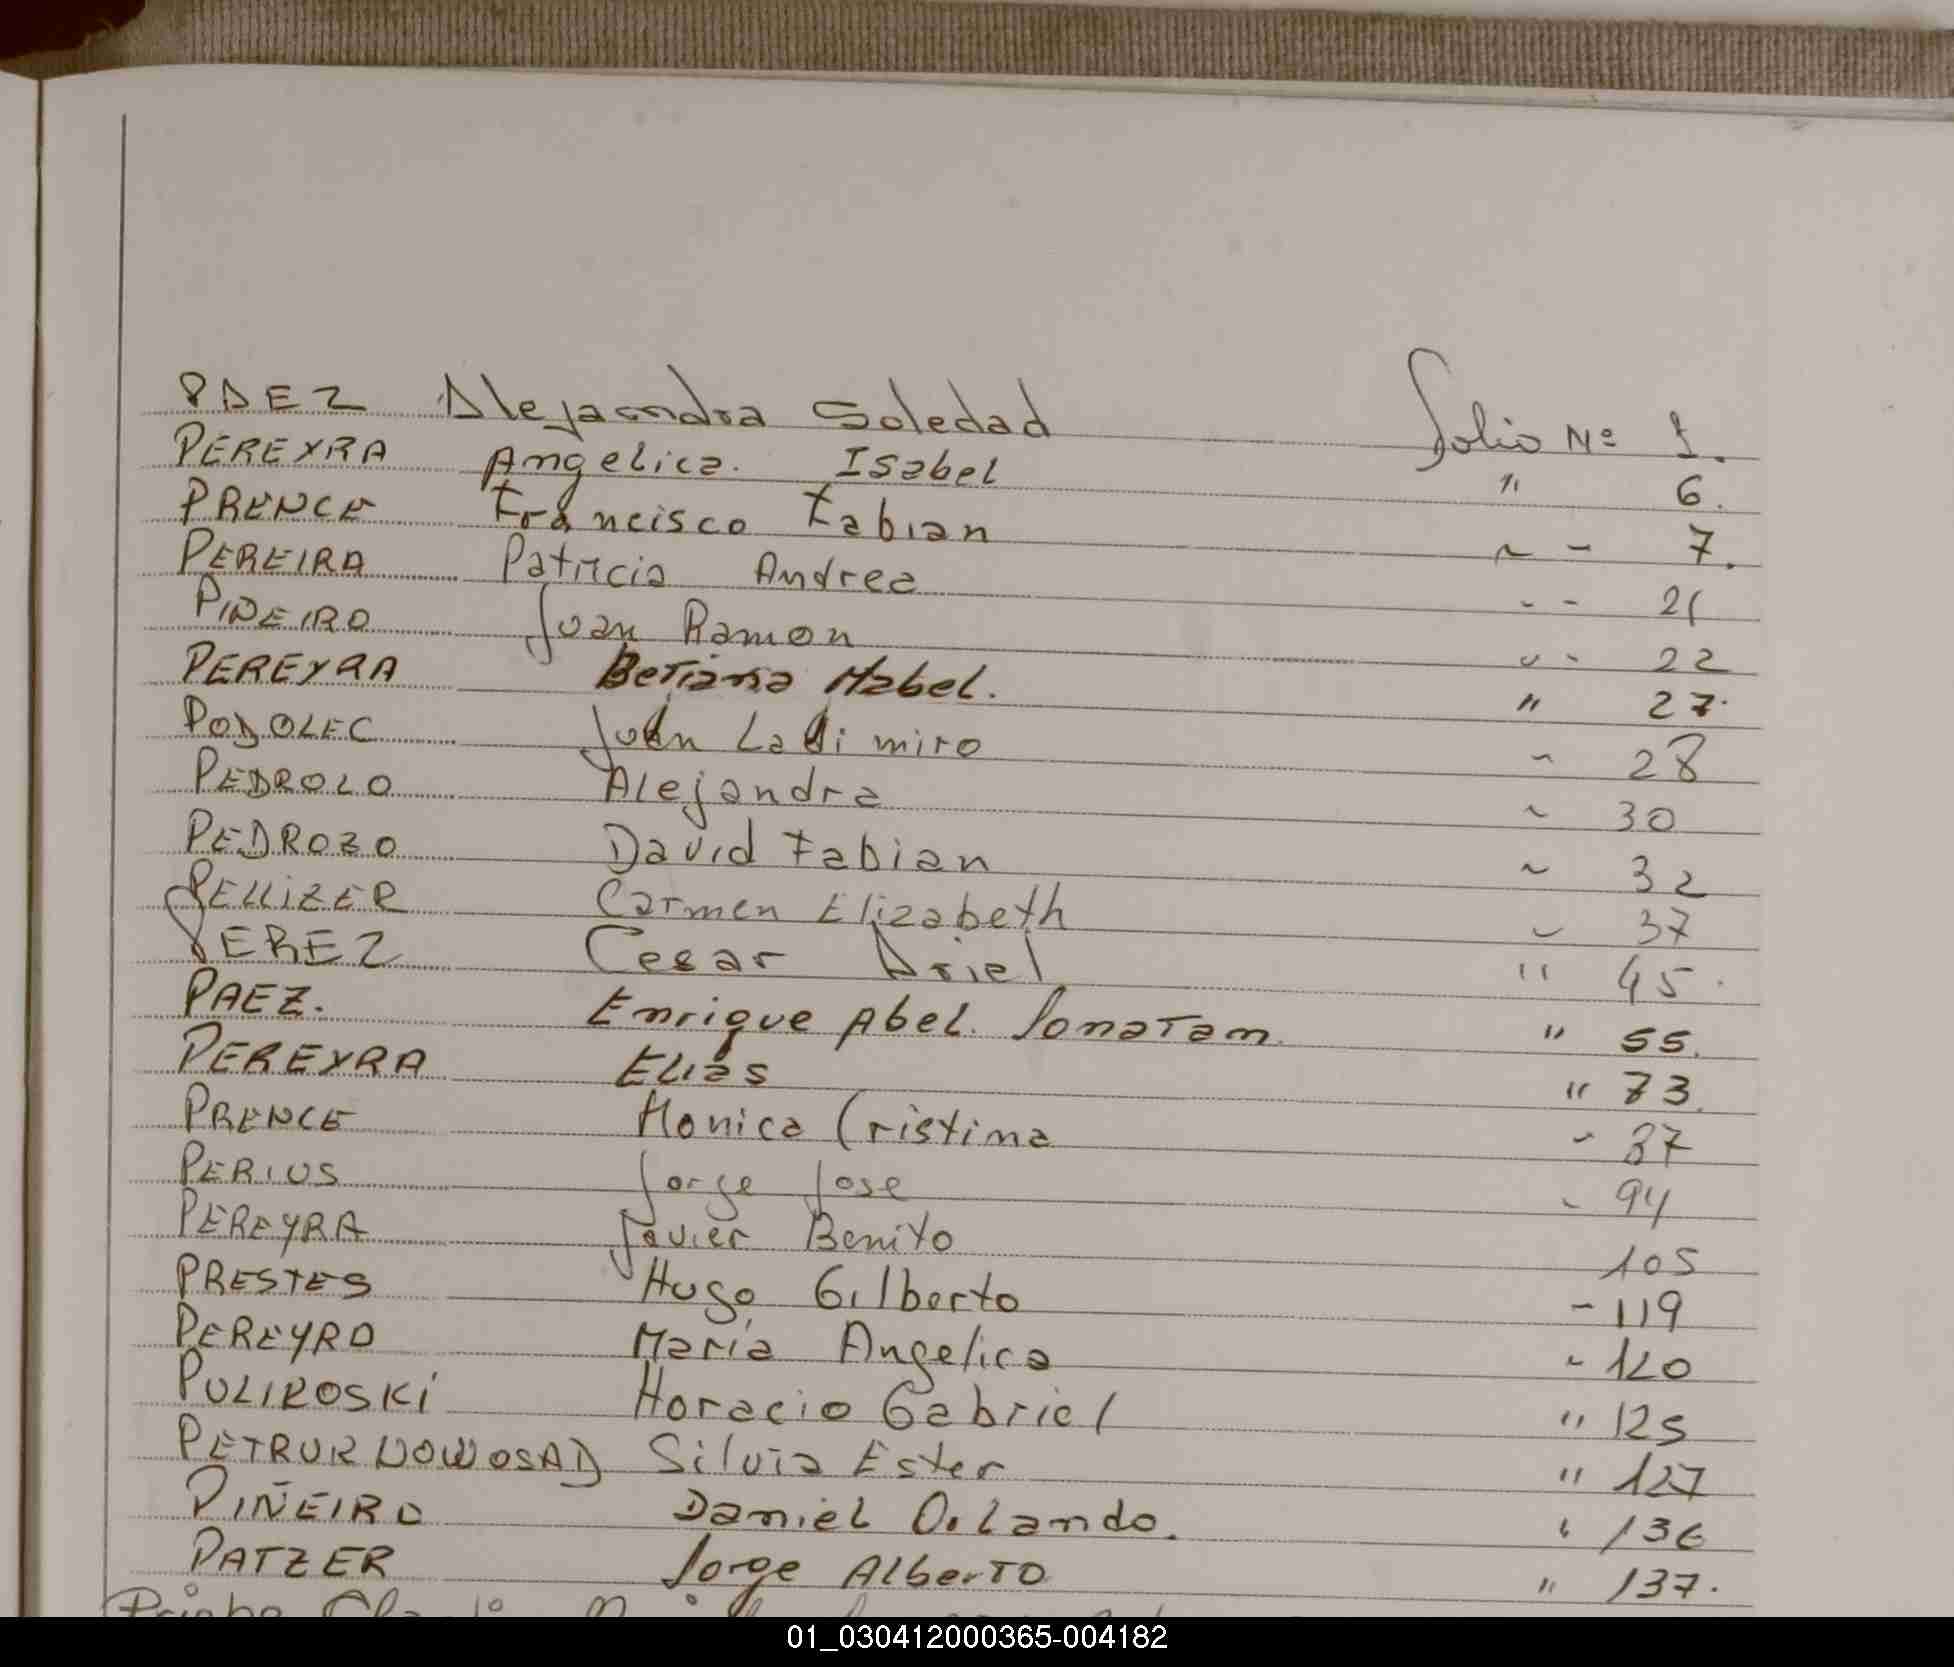 PAEZ Alejandra Soledad Folio Nº 1.
PEREYRA Angelica. Isabel " 6.
PRENCE Francisco Fabian ~ - 7.
PEREIRA Patricia Andrea - - 21
PINEIRO Juan Ramon " - 22
PEREYRA Betiana Mabel. " 27.
PODOLEC Juan Ladimiro ~ 28
PEDROLO Alejandra ~ 30
PEDROZO David Fabian ~ 32
PELLIZER Carmen Elizabeth ~ 37
PEREZ Cesar Ariel " 45.
PAEZ. Enrique Abel. Jonatan. " 55.
PEREYRA Elias " 73.
PRENCE Monica Cristina ~ 87
PERIUS Jorge Jose ~ 94
PEREYRA Javier Benito 105
PRESTES Hugo Gilberto - 119
PEREYRO María Angelica ~ 120
PULIROSKI Horacio Gabriel " 125
PETRUR NOWOSAD Silvia Ester " 127
PIÑEIRO Daniel Orlando. " 136
PATZER Jorge Alberto " 137.
01_030412000365-004182